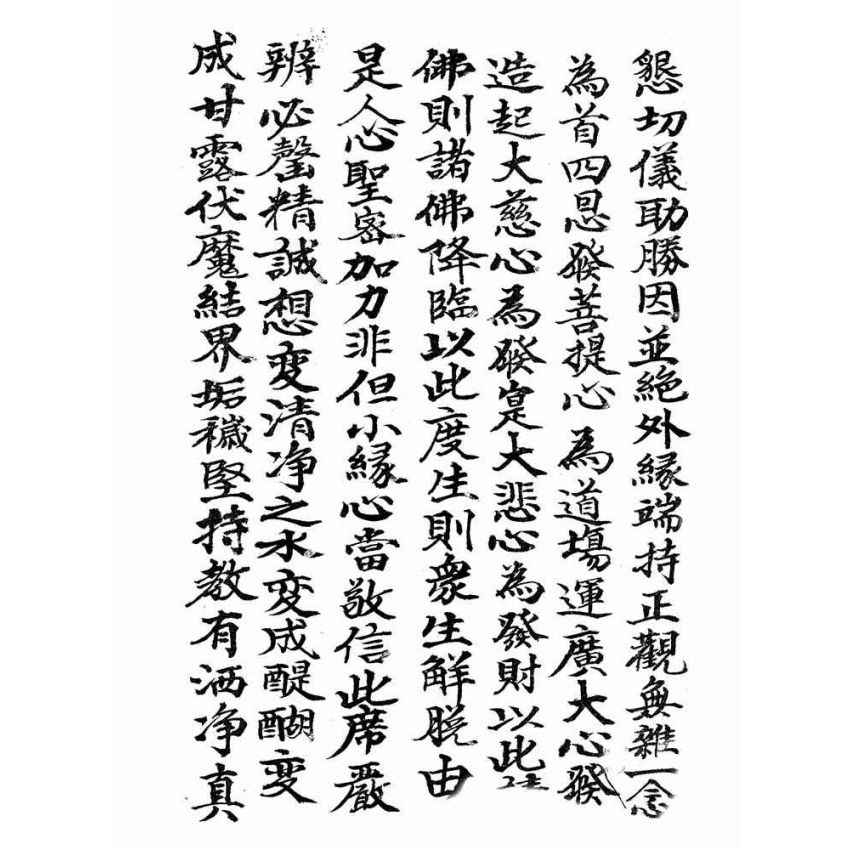 懇切儀助勝因並絕外緣端持正觀無雜一念
為首四恩發菩提心為道塲運廣大心發
造起大慈心為發寔大悲心為發財以此
佛則諸佛降臨以此度生則衆生解脫由
是人心聖密加力非但小緣心當敬信此席嚴
辨必罄精誠想变清净之水变成醍醐变
成甘露伏魔結界垢穢堅持教有洒净真